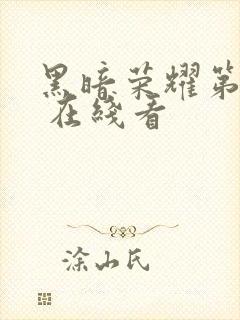 黑暗荣耀第
在线看
涂山氏